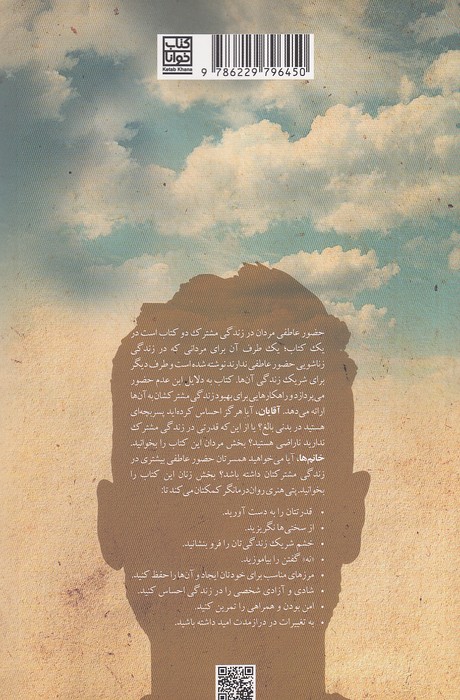 کتاب
خوانا
Ketab Khana
9 786229 796450
حضور عاطفی مردان در زندگی مشترک دو کتاب است در
یک کتاب؛ یک طرف آن برای مردانی که در زندگی
زناشویی حضور عاطفی ندارند نوشته شده است و طرف دیگر
برای شریک زندگی آن‌ها. کتاب به دلایل این عدم حضور
می‌پردازد و راهکارهایی برای بهبود زندگی مشترکشان به آن‌ها
ارائه می‌دهد. آقایان، آیا هرگز احساس کرده‌اید پسربچه‌ای
هستید در بدنی بالغ؟ یا از این که قدرتی در زندگی مشترک
ندارید ناراضی هستید؟ بخش مردان این کتاب را بخوانید.
خانم‌ها، آیا می‌خواهید همسرتان حضور عاطفی بیشتری در
زندگی مشترکتان داشته باشد؟ بخش زنان این کتاب را
بخوانید. پتی هنری روان‌درمانگر کمکتان می‌کند تا:
• قدرتتان را به دست آورید.
• از سختی‌ها نگریزید.
• خشم شریک زندگی‌تان را فرو بنشانید.
• «نه» گفتن را بیاموزید.
• مرزهای مناسب برای خودتان ایجاد و آن‌ها را حفظ کنید.
• شادی و آزادی شخصی را در زندگی احساس کنید.
• امن بودن و همراهی را تمرین کنید.
• به تغییرات در درازمدت امید داشته باشید.